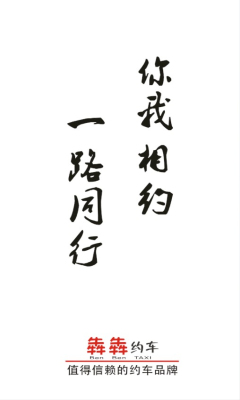 你我相约
一路同行
犇犇约车
Ben Ben TAXI
值得信赖的约车品牌